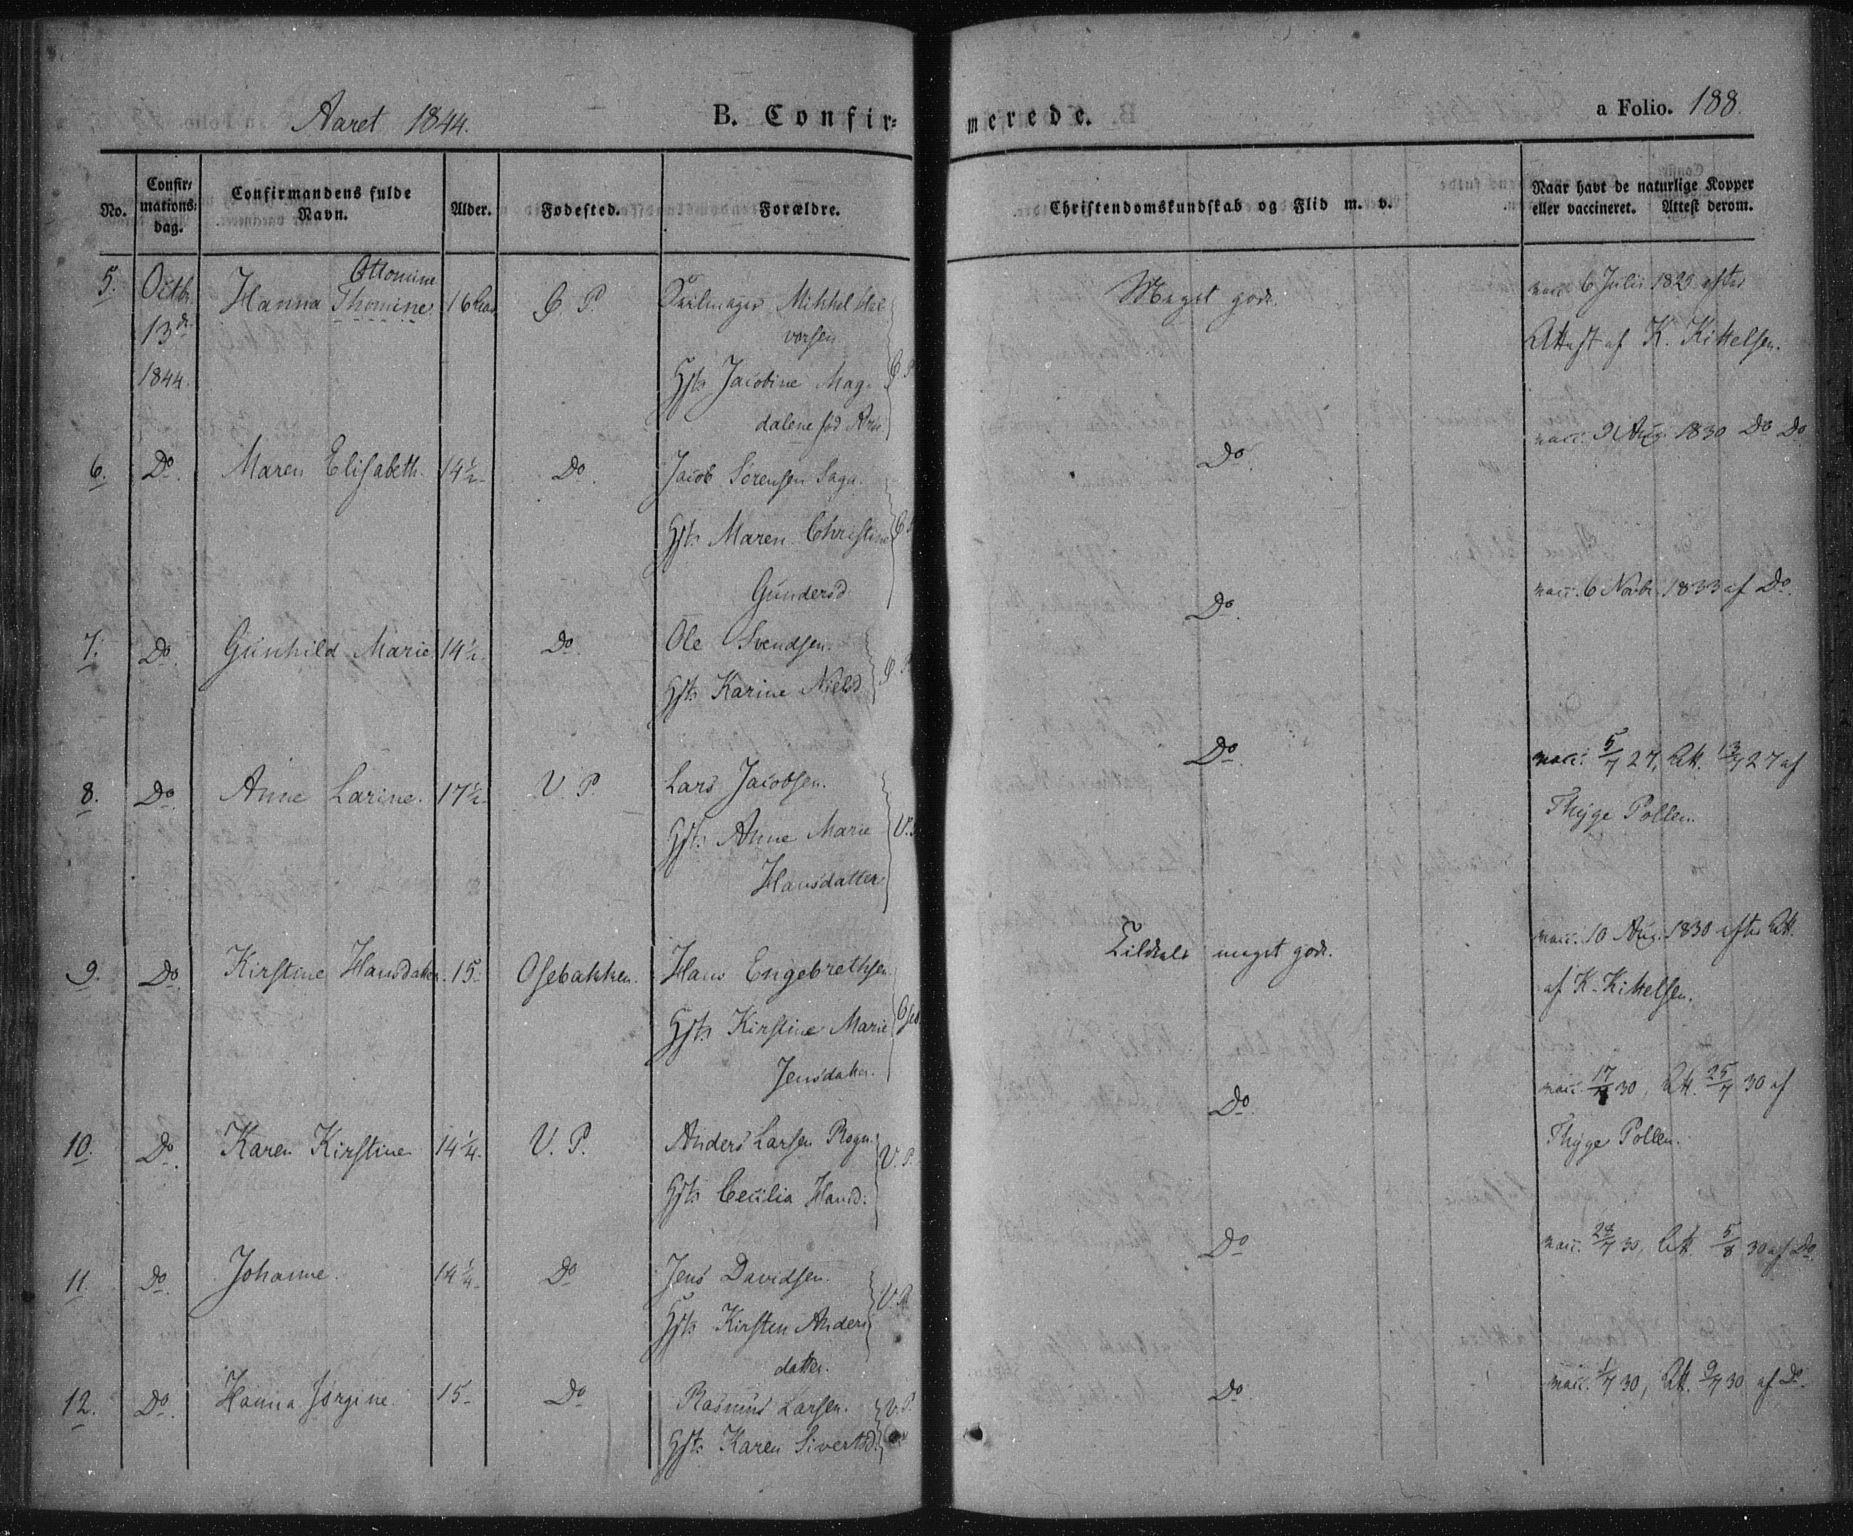 Aaret 1844.
B. Confir=
merede.
a Folio. 188.
No.
Confir=
mations=
dag.
Confirmandens fulde
Navn.
Alder.
Fødested.
Forældre.
Christendomskundskab og Flid m. v.
Naar havt de naturlige Kopper
eller vaccineret. Attest derom.
5. Octbr. 13de 1844. Hanna Ottomine Thomine 16 P.
Mikkel Hal
vorsen
Hst: Jacobine Mag-
dalene fød
Meget godt.
vacc. 6 Julii 1829 efter
Attest af K. Kittelsen.
6. Do. Maren Elisabeth. 14½ Do.
Jacob Sørensen Saga.
Hst: Maren Christine
Gundersd
Do.
vacc. 9 Aug. 1830 Do Do
7. Do. Gunhild Marie 14½ Do.
Ole Svendsen.
Hst: Karine Nielsd
Do.
vacc. 6 Novbr. 1833 af Do.
8. Do. Anne Larine. 17½ V. P
Lars Jacobsen.
Hst: Anne Marie V. P.
Hansdatter
Do.
vacc. 5/7 27, Att. 13/7 27 af
Thyge Pollen.
9. Do. Kirstine Hansdatter. 15. Osebakken.
Hans Engebrethsen
Hst: Kirstine Marie Oseb
Jensdatter.
meget godt.
vacc. 10 Aug. 1830 efter Att.
af K. Kittelsen.
10. Do. Karen Kirstine 14¼. V. P.
Anders Larsen
Hst: Cecilia Hansd: V. P.
Do.
vacc. 17/7 30, Att. 25/7 30 af
Thyge Pollen.
11. Do. Johanne. 14¼. Do
Jens Davidsen.
Hst: Kirsten Anders V. P.
datter.
Do
vacc. 28/7 30, Att. 5/8 30 af Do.
12. Do. Hanna Jørgine. 15. Do
Rasmus Larsen. V. P.
Hst: Karen Sivertsd.
Do
vacc. 1/7 30, Att. 9/7 30 af Do.